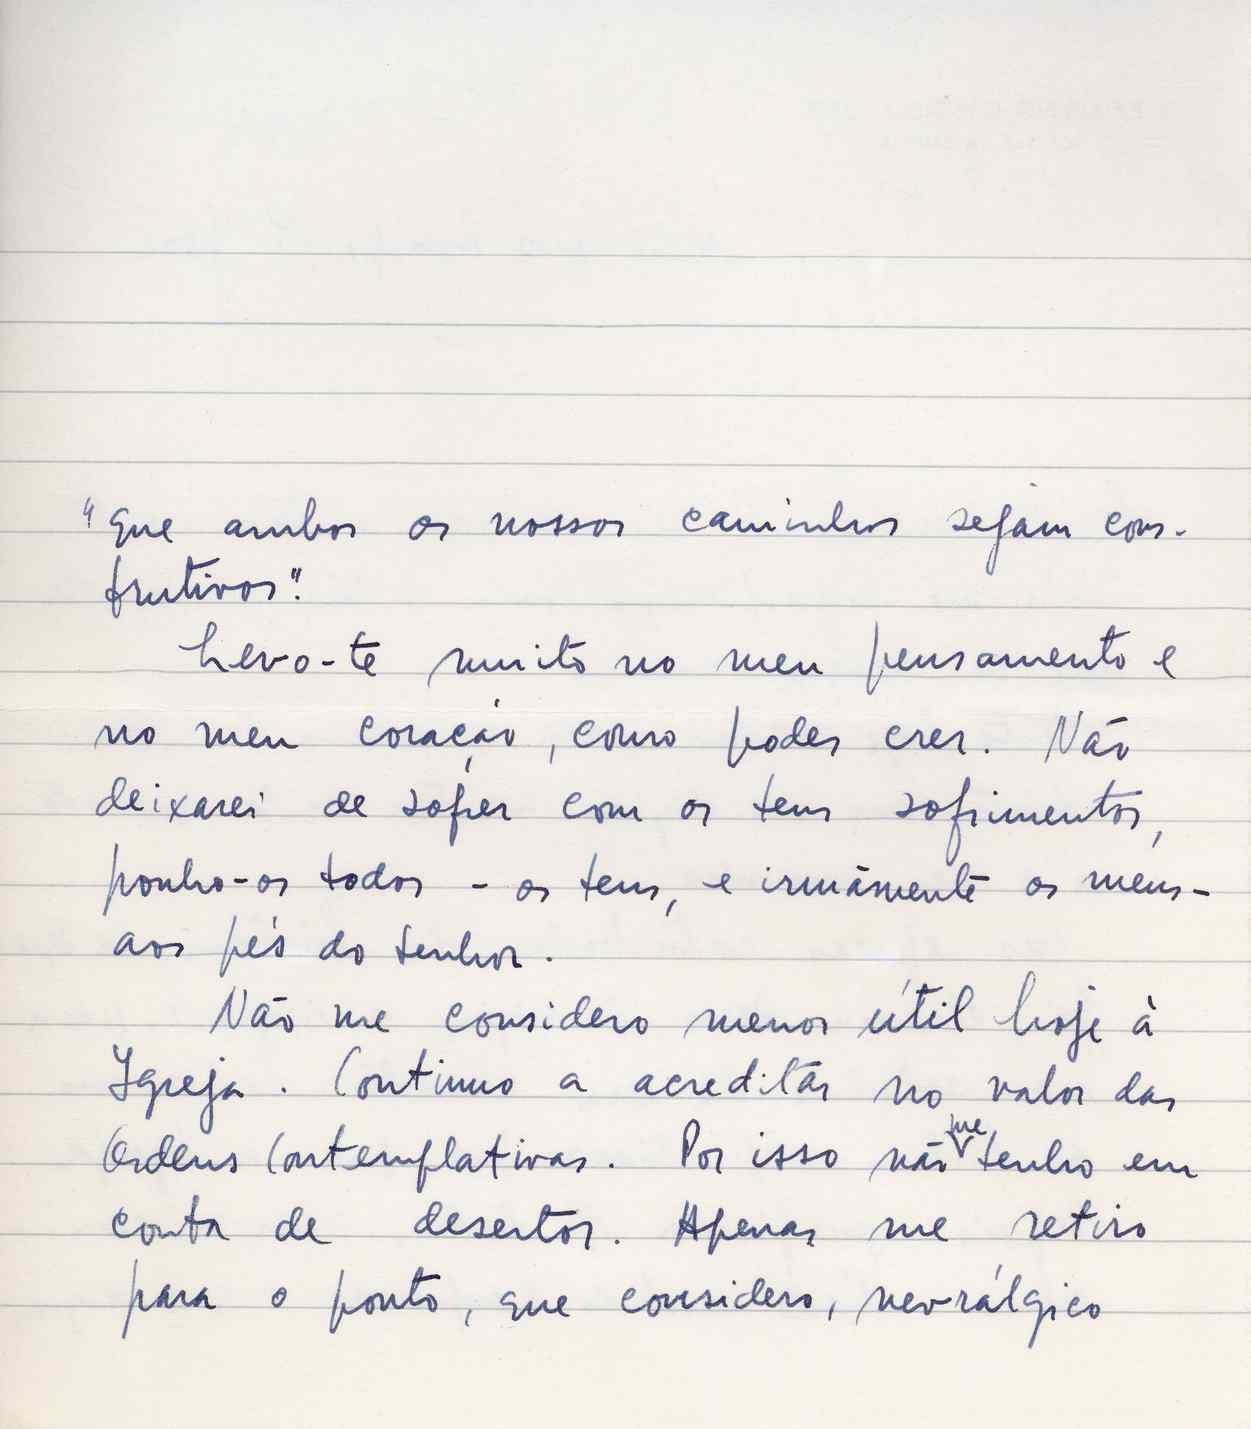 "que ambos os nossos caminhos sejam cons-
trutivos".
Levo-te muito no meu pensamento e
no meu coração, como podes crer. Não
deixarei de sofrer com os teus sofrimentos,
ponho-os todos - os teus, e irmãmente os meus -
aos pés do Senhor.
Não me considero menos útil hoje à
Igreja. Continuo a acreditar no valor das
Ordens Contemplativas. Por isso não me tenho em
conta de desertor. Apenas me retiro
para o ponto, que considero, nevrálgico